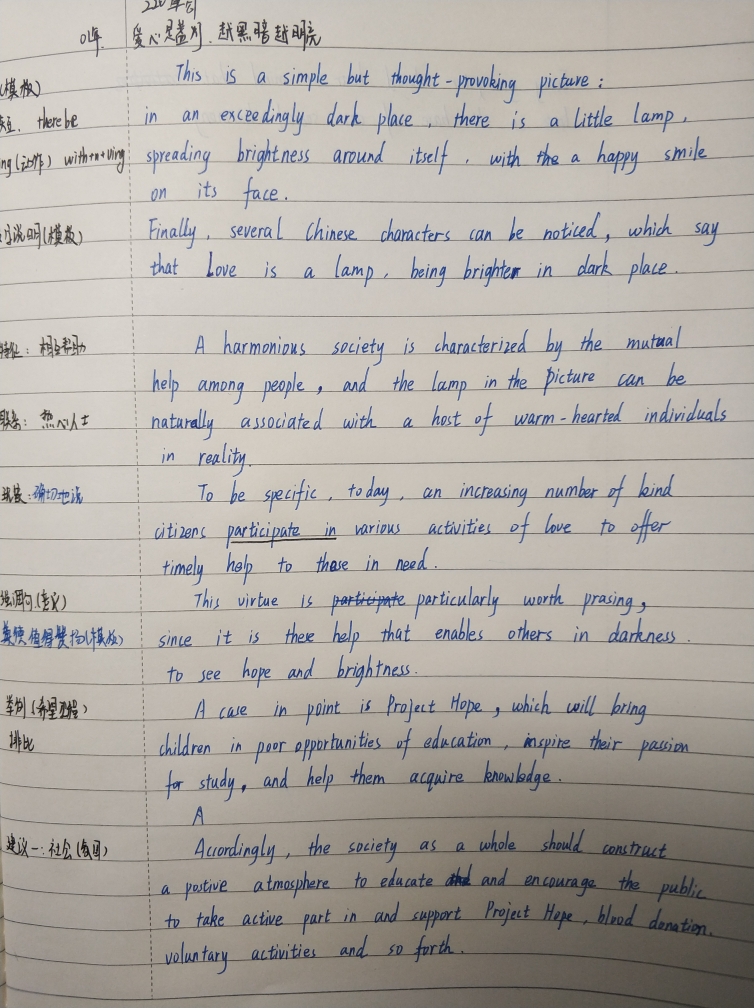 01年 爱心是盏灯,越黑暗越明亮
(模板) This is a simple but thought-provoking picture:
there be in an exceedingly dark place, there is a little lamp,
ng(动作) with+n+ving spreading brightness around itself, with the a happy smile
on its face.
说明(模板) Finally, several Chinese characters can be noticed, which say
that Love is a lamp, being brighter in dark place.
特征: 相互帮助 A harmonious society is characterized by the mutual
help among people, and the lamp in the picture can be
联系: 热心人士 naturally associated with a host of warm-hearted individuals
in reality.
确切地说 To be specific, today, an increasing number of kind
citizens participate in various activities of love to offer
timely help to those in need.
强调句(意义) This virtue is participate particularly worth prasing,
美德值得赞扬(模板) since it is there help that enables others in darkness.
to see hope and brightness.
举例(希望工程) A case in point is Project Hope, which will bring
排比 children in poor opportunities of education, inspire their passion
for study, and help them acquire knowledge.
A
建议一:社会(每回) Accordingly, the society as a whole should construct
a postive atmosphere to educate and and encourage the public
to take active part in and support Project Hope, blood donation.
voluntary activities and so forth.